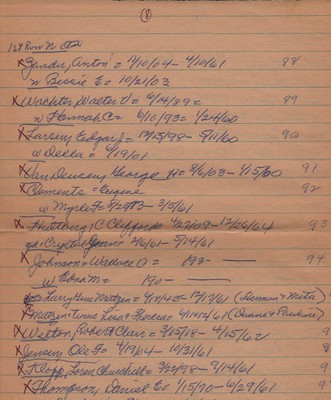 (8)
1st Row N
X Gander, Anton = 9/10/04 - 4/10/61 88
w Bessie E = 10/21/03
X Wachter, Walter O = 6/14/89 = 89
w Hannah C = 6/10/93 = 1/24/60
X Larsen, Edgar J = 12/15/98 - 5/11/60 90
w Della = 6/19/01
X Van Deusen, George H = 8/6/03 - 1/15/60 91
X Clements = Eugene 92
w Myrtle F = 5/25/13 - 3/5/61
X Huttang, C Clifford 4/22/09 - 12/26/64 93
Crystal 2/6/61 - 9/14/61
X Johnson = Wallace O = 193- 94
w Edna M = 190 -
Larry Gene Mattzen = 12/17/61 (Herman & Meta)
X Mattzen = Lisa Theresa 4/14/12/61 (Duane & Pauline)
X Welton, Robert Clair = 3/15/18 - 4/15/62 9
X Jensen, Ole F = 4/19/04 - 10/31/61 9
X Klopp, Loren Churchill = 3/22/98 - 9/14/61 9
X Thompson, Daniel E = 1/15/90 - 6/29/61 9